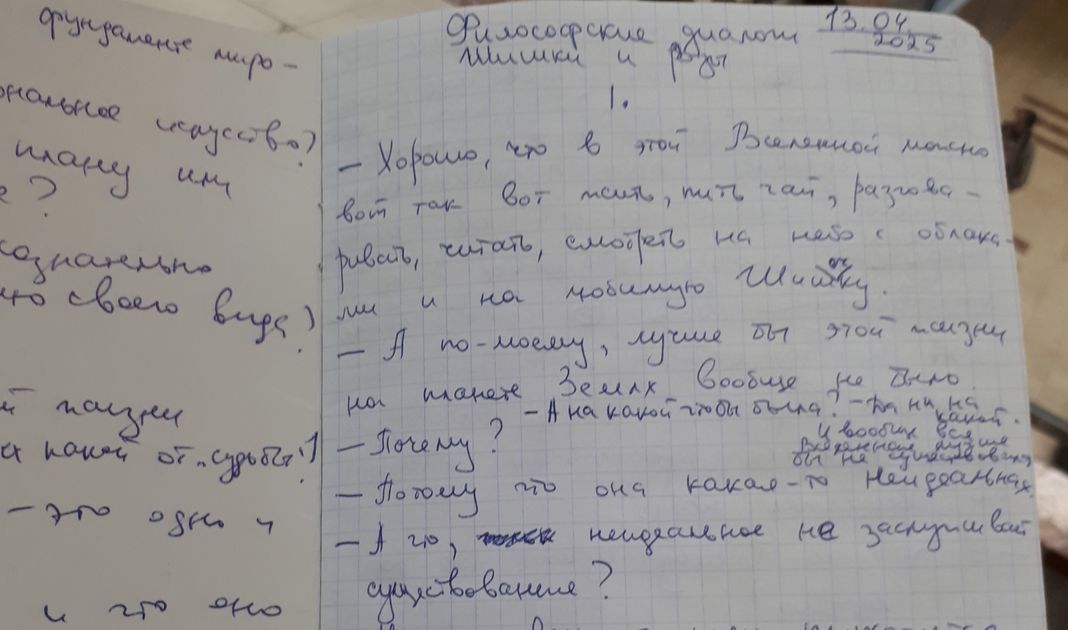 фундаменте миро-
ональное искусство?
плану или
е?
сознательно
ю своего вида?
й жизни
какой от "судьбы"?
- это одно и
и что оно
Философские диалоги
Шишки и розы
13.04
2025
1.
- Хорошо, что в этой Вселенной можно
вот так вот жить, пить чай, разгова-
ривать, читать, смотреть на небо с облака-
ми и на любимую Шишку.
- А по-моему, лучше бы этой жизни
на планете Земля вообще не было.
- А на какой чтобы была? - Да ни на
какой.
И вообще вся
Вселенная лучше
бы не существовала
- Почему?
- Потому что она какая-то неидеальная.
- А что, неидеальное не заслуживает
существования?